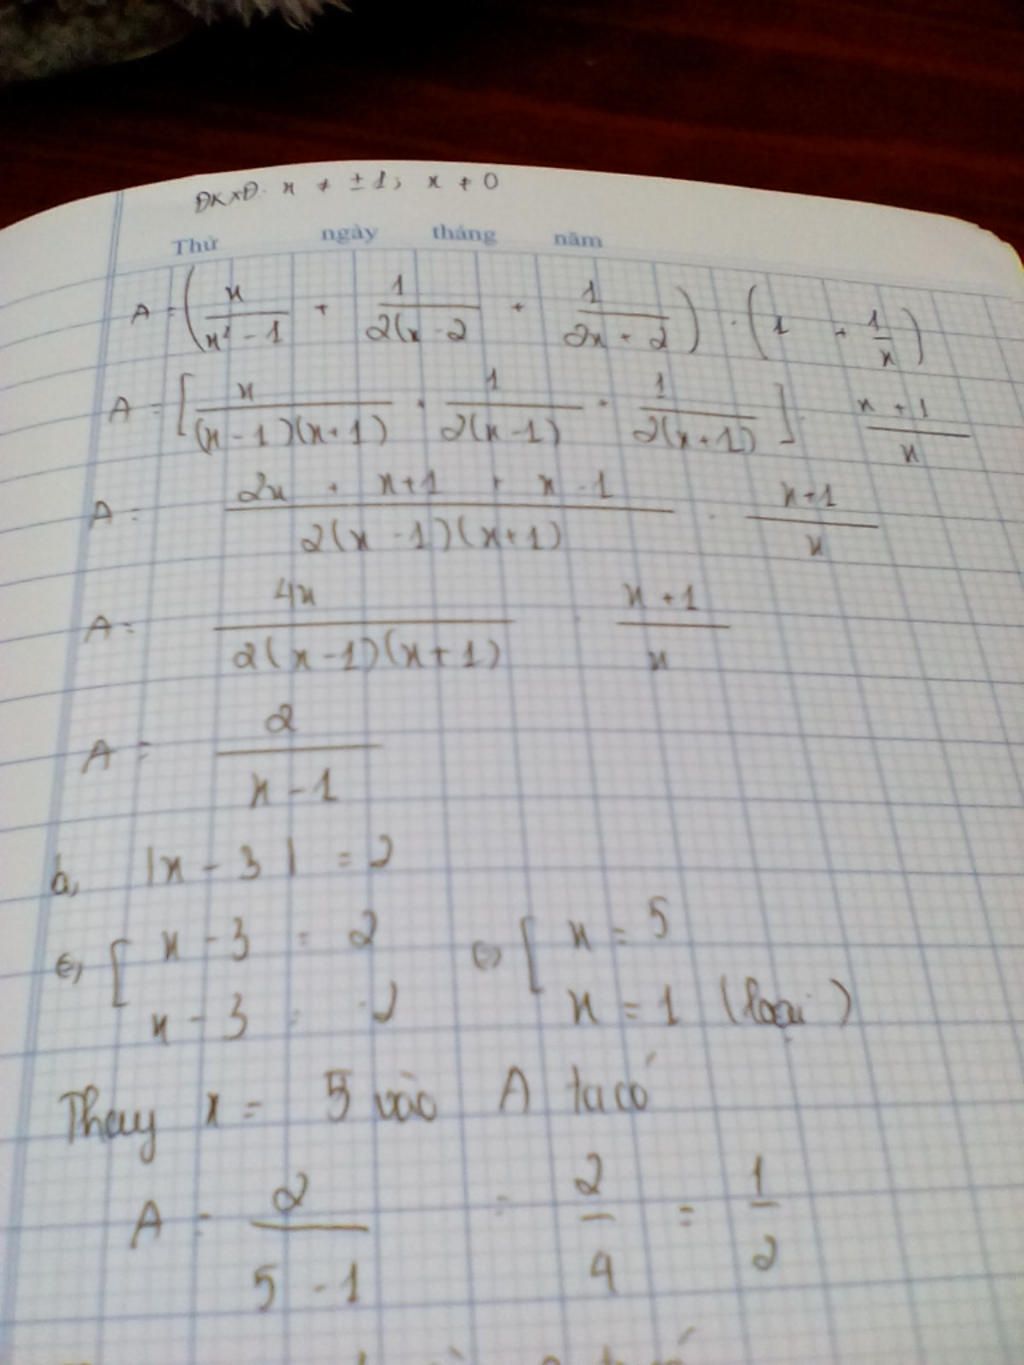 ĐKXĐ: x ≠ ±1; x ≠ 0
Thứ ngày tháng năm
A = (x/(x² - 1) + 1/(2x - 2) + 1/(2x + 2)) . (1 + 1/x)
A = [x/((x - 1)(x + 1)) + 1/(2(x - 1)) + 1/(2(x + 1))] . (x + 1)/x
A = (2x + x+1 + x - 1)/(2(x - 1)(x+1)) . (x+1)/x
A = 4x/(2(x-1)(x+1)) . (x + 1)/x
A = 2/(x - 1)
b, |x - 3| = 2
⇔ [ x - 3 = 2 ⇔ [ x = 5
x - 3 = -2 x = 1 (loại)
Thay x = 5 vào A ta có
A = 2/(5 - 1) = 2/4 = 1/2